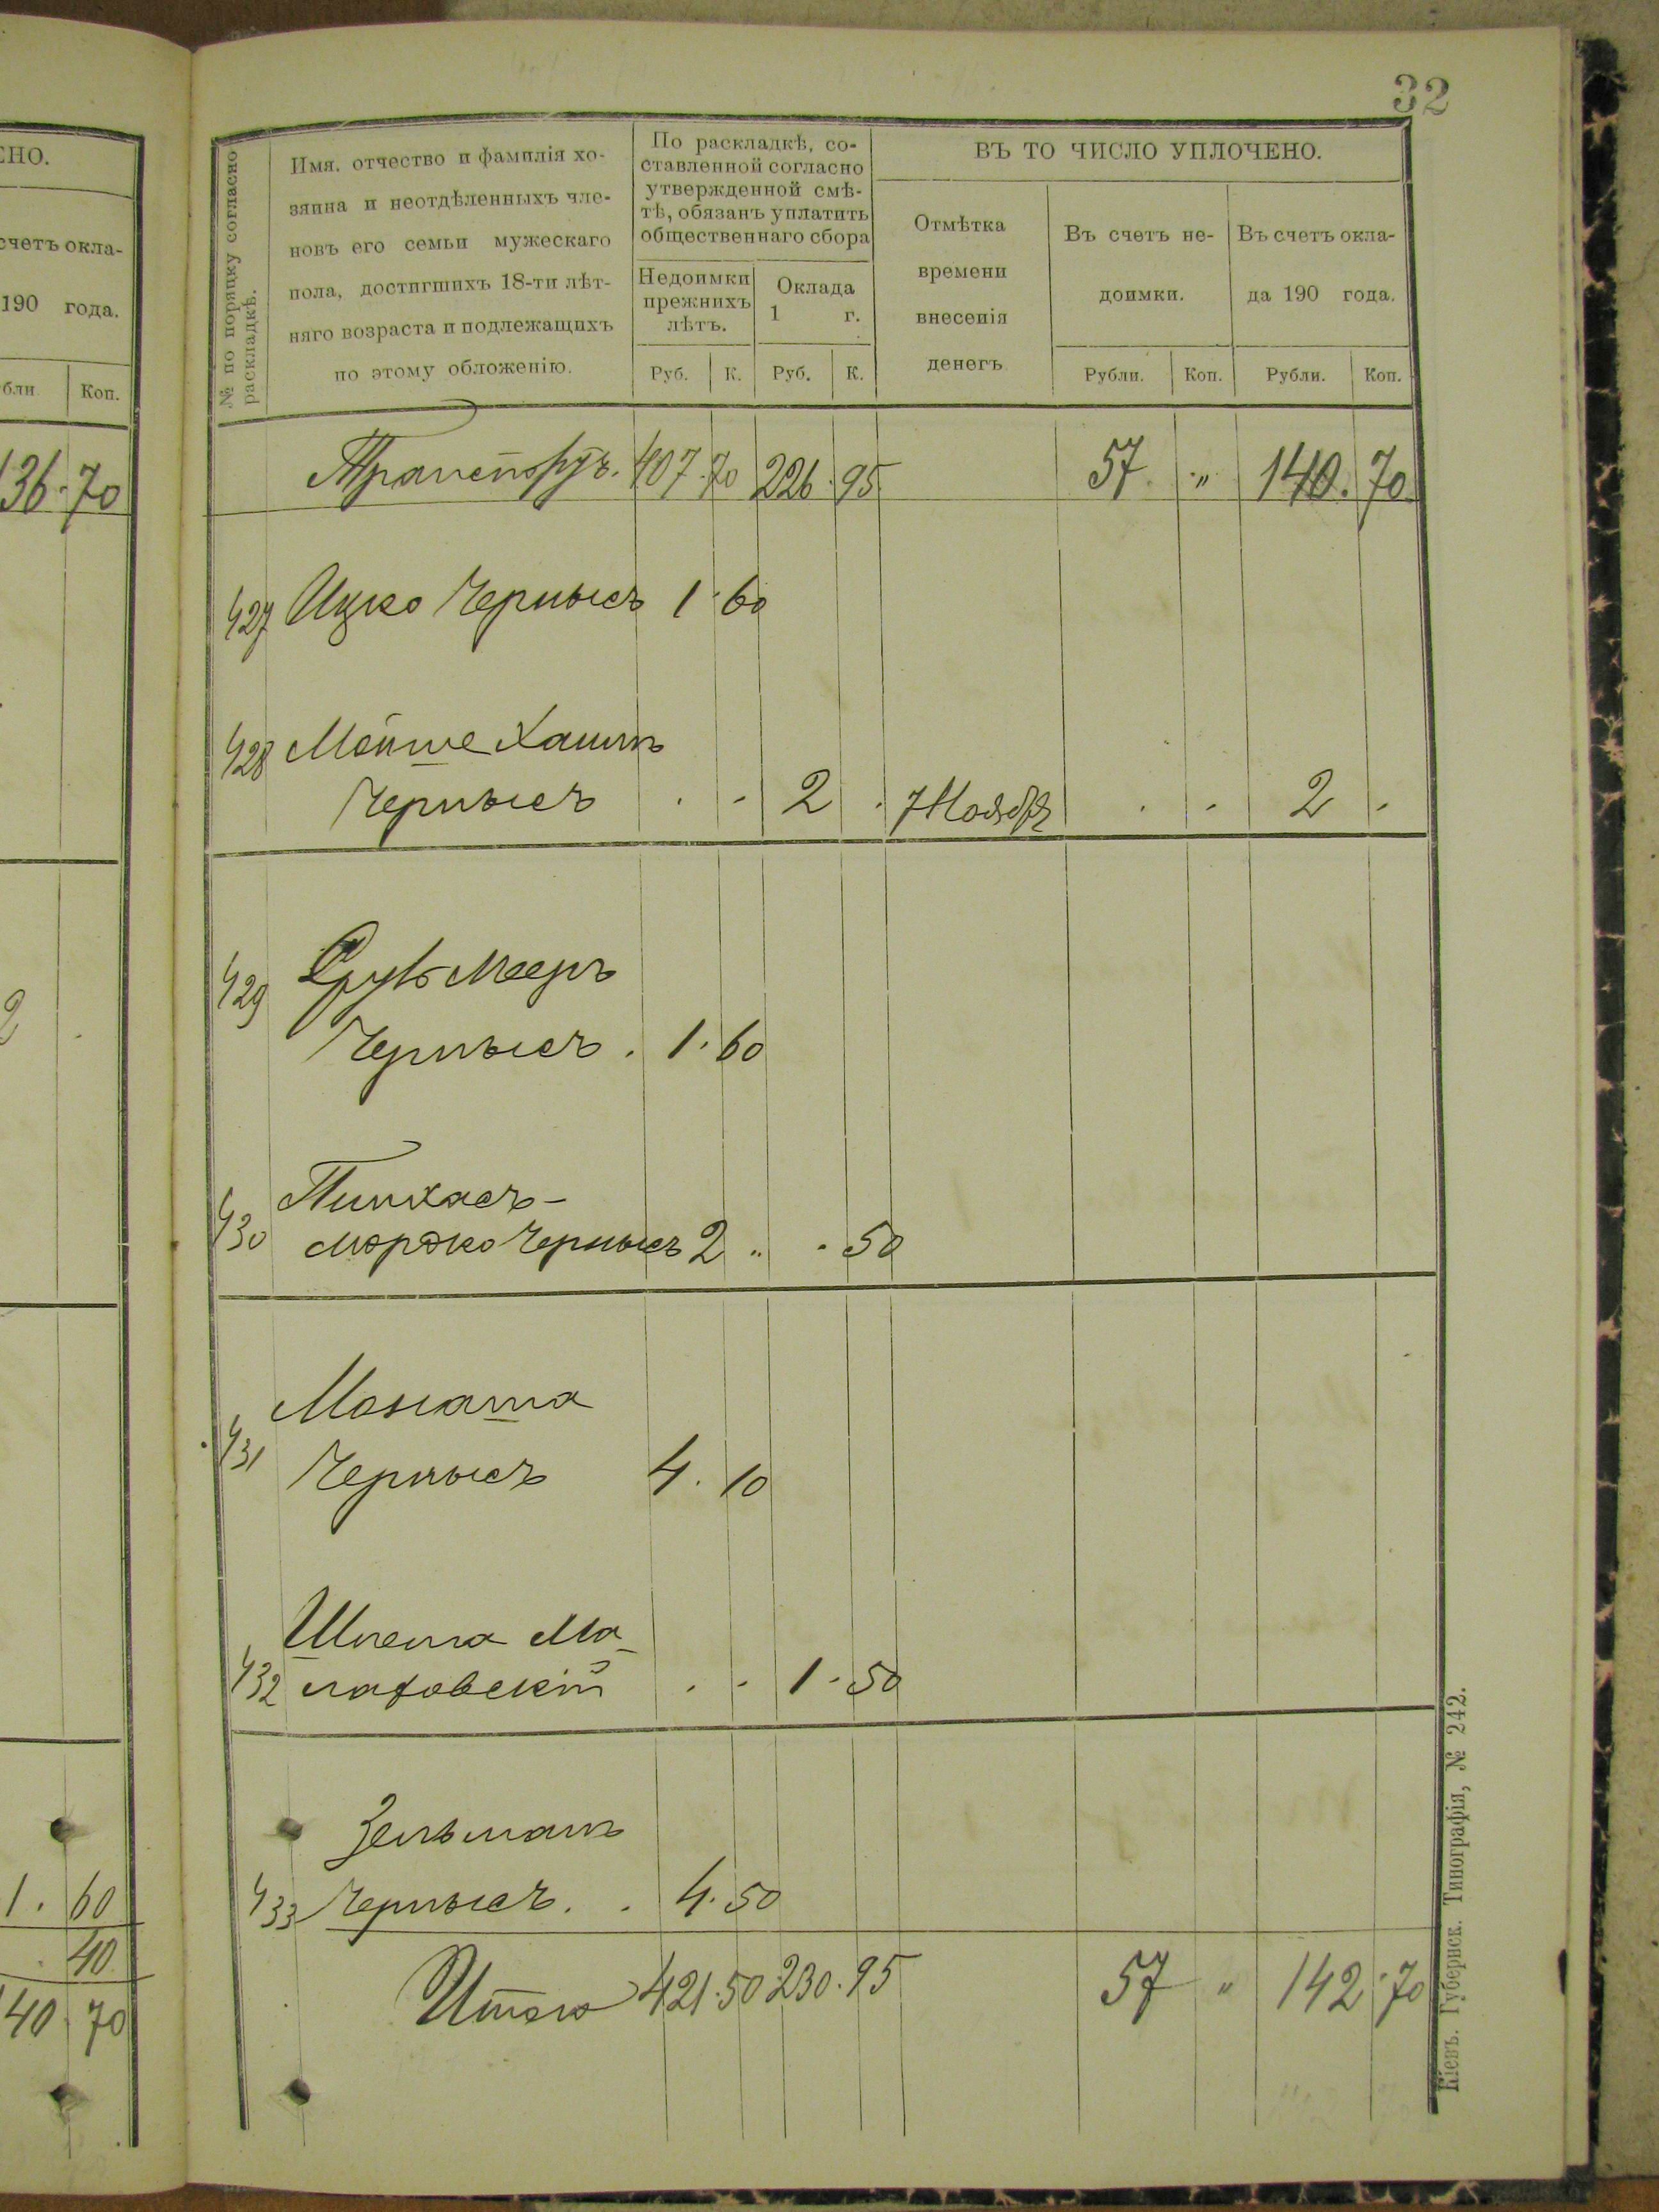 32
ЕНО.
счетъ окла-
190 года.
бли. Коп.
136 . 70
2
1 . 60
. 40
140 . 70
№ по порядку согласно
раскладкѣ.
Имя, отчество и фамилія хо-
зяина и неотдѣленныхъ чле-
новъ его семьи мужескаго
пола, достигшихъ 18-ти лѣт-
няго возраста и подлежащихъ
по этому обложенію.
По раскладкѣ, со-
ставленной согласно
утвержденной смѣ-
тѣ, обязанъ уплатить
общественнаго сбора
Недоимки
прежнихъ
лѣтъ.
Оклада
1 г.
Руб. К. Руб. К.
ВЪ ТО ЧИСЛО УПЛОЧЕНО.
Отмѣтка
времени
внесенія
денегъ
Въ счетъ не-
доимки.
Въ счетъ окла-
да 190 года.
Рубли. Коп. Рубли. Коп.
Транспортъ. 407 . 70 226 . 95 57 . „ 140 . 70
427 Ицко Чернысъ 1 . 60
428 Мойше Хаимъ
Чернысъ . - 2 . 7 Ноября . - 2 -
429 Сруль Мееръ
Чернысъ . 1 . 60
430 Пинхасъ-
Мордко Чернысъ 2 „ . 50
431 Монаша
Чернысъ 4 . 10
432 Шлема Ма-
лаховскій . - 1 - 50
433 Зельманъ
Чернысъ . . 4 . 50
Итого 421 . 50 230 . 95 57 „ 142 . 70
Кіевъ. Губернск. Типографія, № 242.